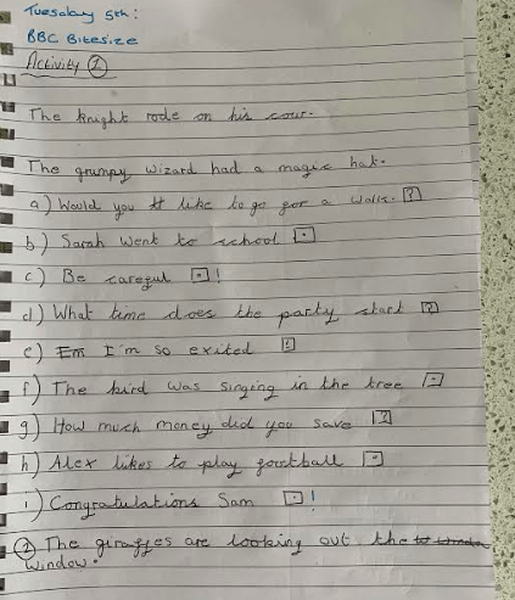 Tuesday 5th:
BBC Bitesize
Activity 1
The knight rode on his cow.
The grumpy wizard had a magic hat.
a) Would you like to go for a walk. ?
b) Sarah went to school .
c) Be careful . !
d) What time does the party start ?
e) I'm so exited !
f) The bird was singing in the tree .
g) How much money did you save ?
h) Alex likes to play football .
i) Congratulations Sam . !
2 The giraffes are looking out the
window.